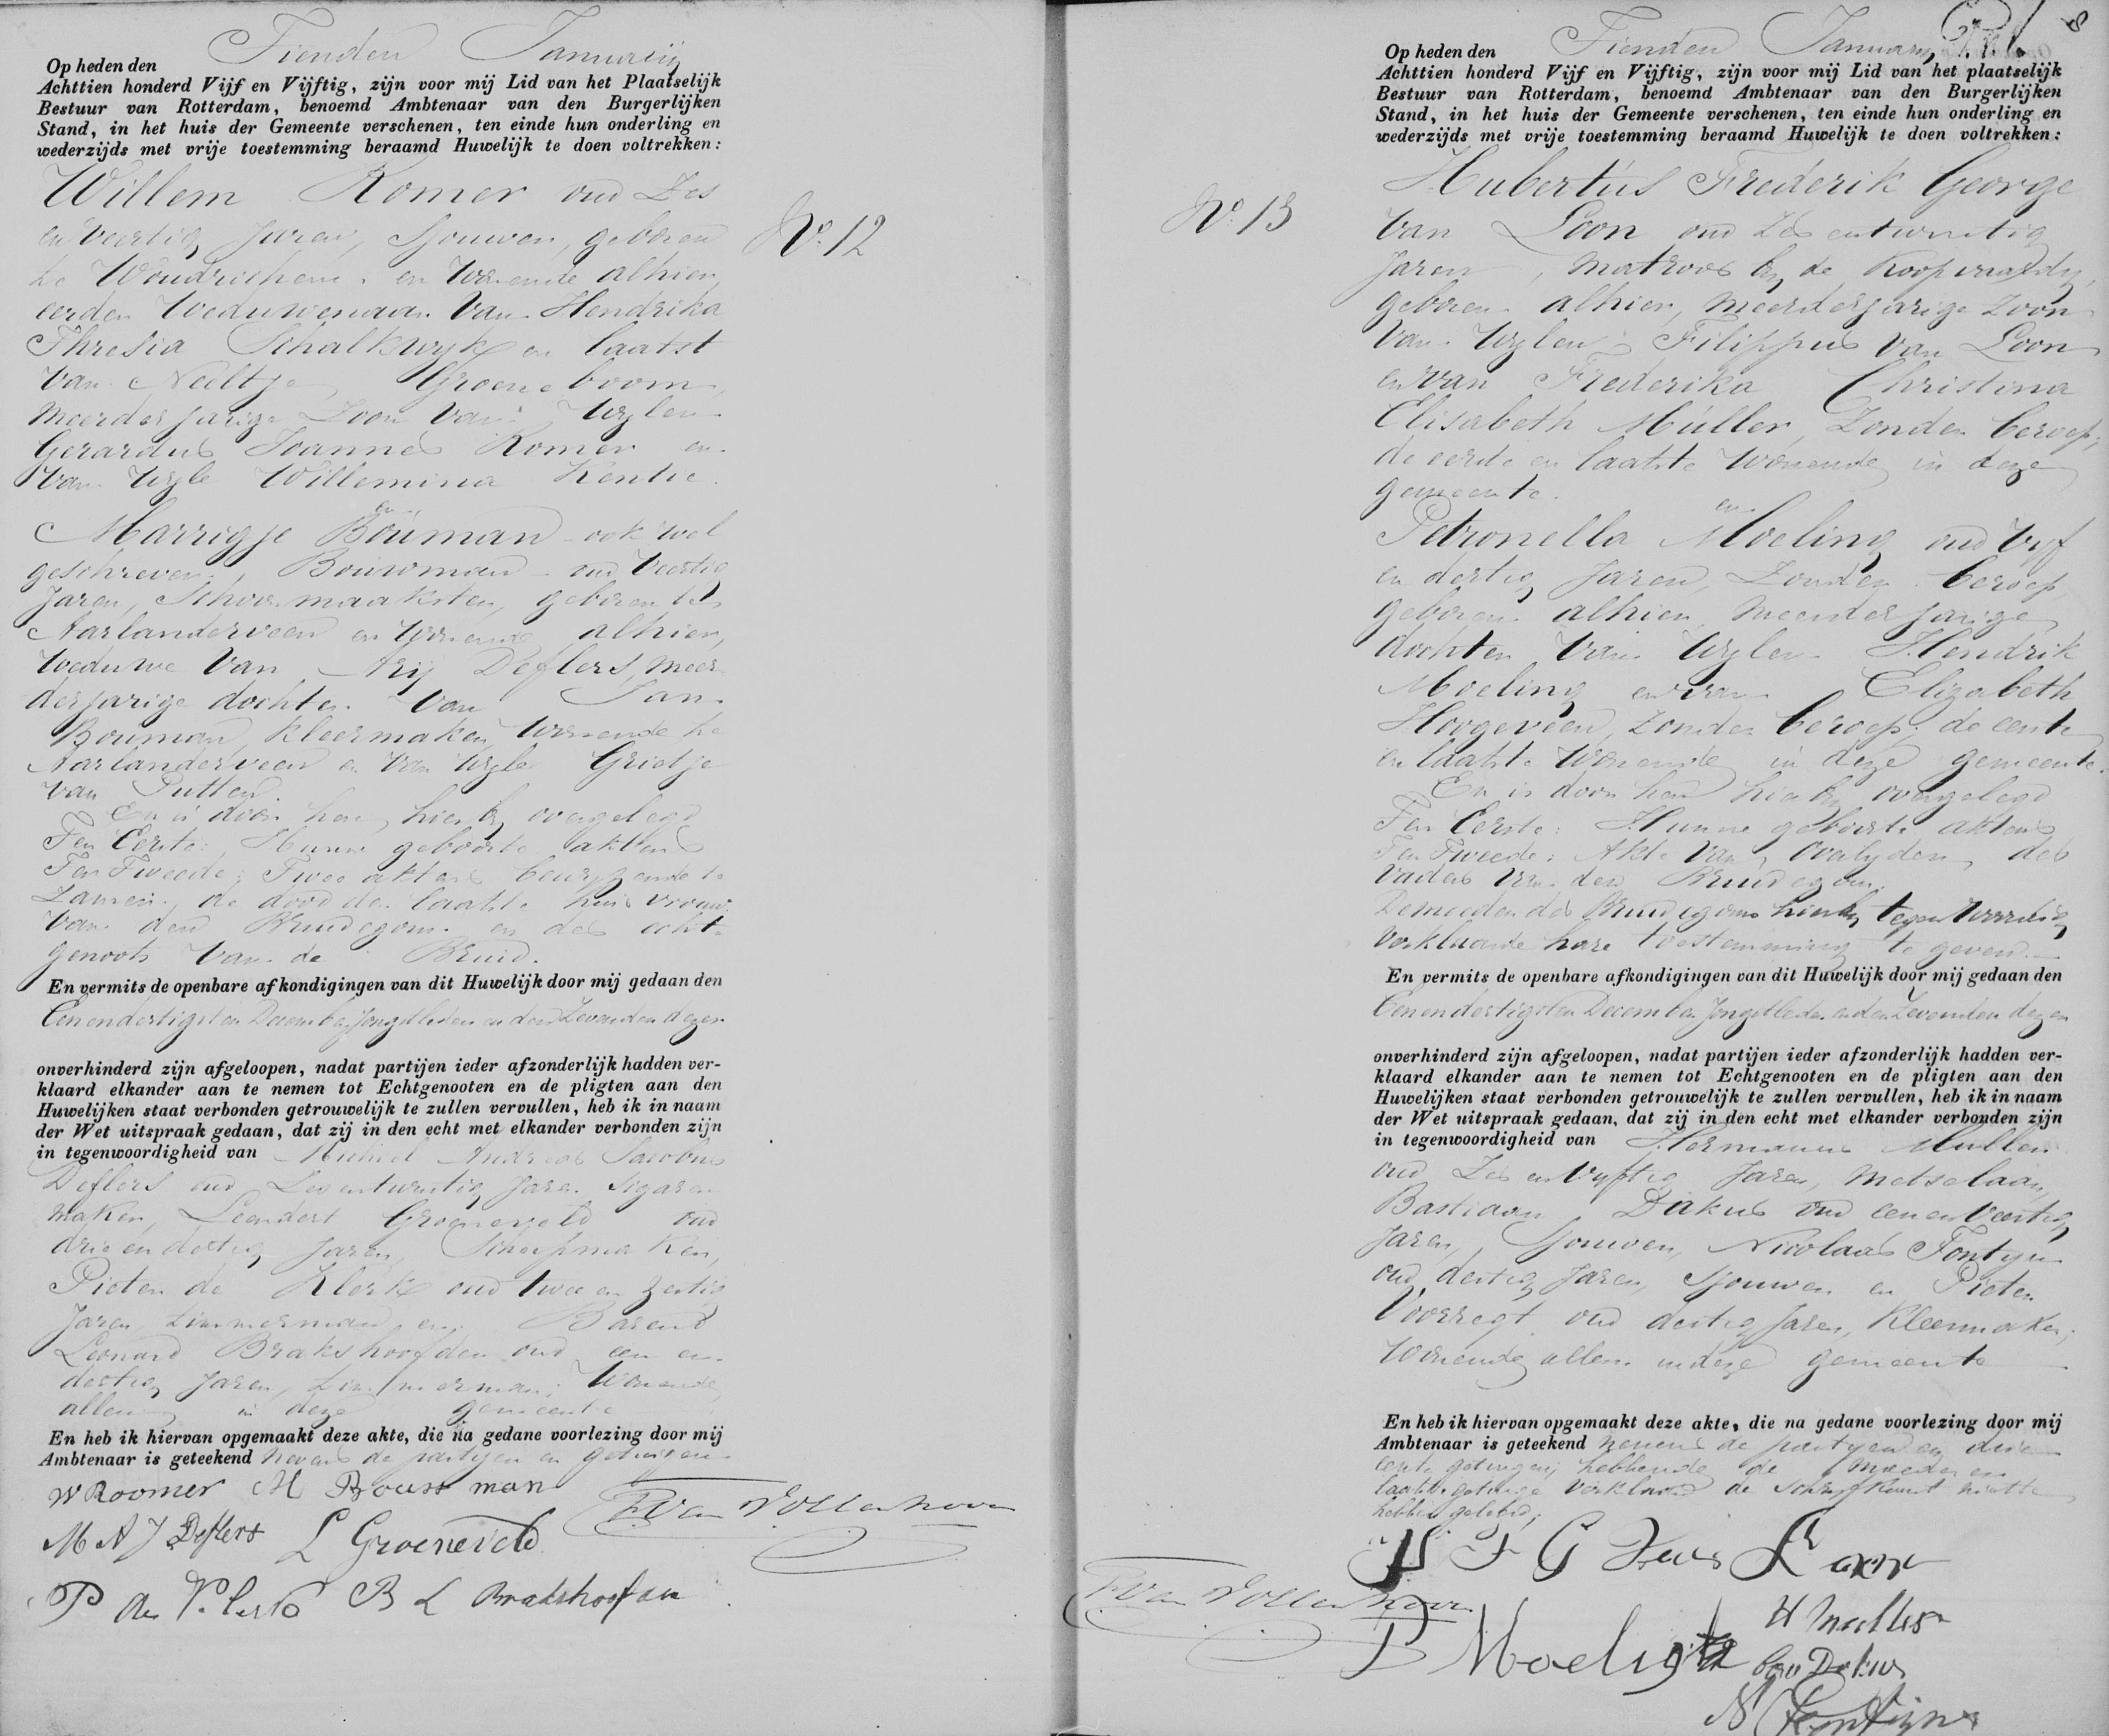 Op heden den Tienden Januarij
Achttien honderd Vijf en Vijftig, zijn voor mij Lid van het Plaatselijk
Bestuur van Rotterdam, benoemd Ambtenaar van den Burgerlijken
Stand, in het huis der Gemeente verschenen, ten einde hun onderling en
wederzijds met vrije toestemming beraamd Huwelijk te doen voltrekken:
No. 12
Willem Romer oud Zes
en veertig Jaren, Sjouwer, geboren
te Woudrichem en wonende alhier,
eerder Weduwenaar van Hendrika
Thresia Schalkwyk en laatst
van Neeltje Groeneboom,
meerderjarige Zoon van Wylen
Gerardus Joannes Romer en
van Wyle Willemina Kentie.
en
Marrigje Bouman ook wel
geschreven, Bouwman oud Veertig
Jaren, Schoonmaakster, geboren te
Aarlanderveen en wonende alhier,
weduwe van Arij Deflers, meer
derjarige dochter van Jan
Bouman, kleermaker, wonende te
Aarlanderveen en van wyle Grietje
van Putten.
En is door hen hier by overgelegd
Ten Eerste: Hunne geboorte akten
Ten Tweede: Twee akten bewyzende te
Zamen, de dood der laatste huisvrouw
van den Bruidegom en des echt-
genoots van de Bruid.
En vermits de openbare afkondigingen van dit Huwelijk door mij gedaan den
Een en dertigsten December Jongstleden en den Zevenden dezer
onverhinderd zijn afgeloopen, nadat partijen ieder afzonderlijk hadden ver-
klaard elkander aan te nemen tot Echtgenooten en de pligten aan den
Huwelijken staat verbonden getrouwelijk te zullen vervullen, heb ik in naam
der Wet uitspraak gedaan, dat zij in den echt met elkander verbonden zijn
in tegenwoordigheid van Michiel Andreas Jacobus
Deflers oud Zes en twintig Jaren Sigaren
maker, Leendert Groeneveld oud
drie en dertig Jaren, Scheepmaker,
Pieter de Klerk oud twee en zestig
Jaren, timmerman en Barend
Leonard Brakshoofden oud een en
dertig Jaren, timmerman; wonende
allen in deze gemeente
En heb ik hiervan opgemaakt deze akte, die na gedane voorlezing door mij
Ambtenaar is geteekend nevens de partyen en getuigen.
W Roomer M Bouwman
M A J Deflers L Groeneveld
P de Klerk B L Brakshoofden
F Van Vollenhoven
Op heden den Tienden January
Achttien honderd Vijf en Vijftig, zijn voor mij Lid van het plaatselijk
Bestuur van Rotterdam, benoemd Ambtenaar van den Burgerlijken
Stand, in het huis der Gemeente verschenen, ten einde hun onderling en
wederzijds met vrije toestemming beraamd Huwelijk te doen voltrekken:
No. 13
Hubertus Frederik George
van Loon oud Zes en twintig
Jaren, matroos by de Koopvaardy,
geboren alhier, meerderjarige Zoon
van Wylen Filippus van Loon
en van Frederika Christina
Elisabeth Müller, Zonder beroep;
de eerste en laatste wonende in deze
gemeente.
en
Petronella Moeling oud Vyf
en dertig Jaren, Zonder beroep,
geboren alhier, meerderjarige
dochter van Wylen Hendrik
Moeling en van Elizabeth
Hoogeveen, Zonder beroep; de eerste
en laatste wonende in deze gemeente.
En is door hen hierby overgelegd
Ten Eerste: Hunne geboorte akten
Ten Tweede: Akte van overlyden des
Vaders van den Bruidegom.
De moeder des Bruidegoms hierby tegenwoordig
verklaarde hare toestemming te geven.
En vermits de openbare afkondigingen van dit Huwelijk door mij gedaan den
Een en dertigsten December Jongstleden en den Zevenden dezer
onverhinderd zijn afgeloopen, nadat partijen ieder afzonderlijk hadden ver-
klaard elkander aan te nemen tot Echtgenooten en de pligten aan den
Huwelijken staat verbonden getrouwelijk te zullen vervullen, heb ik in naam
der Wet uitspraak gedaan, dat zij in den echt met elkander verbonden zijn
in tegenwoordigheid van Hermanus Muller
oud Zes en Vyftig Jaren, metselaar,
Bastiaan Dakus oud een en Veertig
Jaren, Sjouwer, Nicolaas Fontyn
oud dertig Jaren, Sjouwer en Pieter
Voorregt oud dertig Jaren, Kleermaker;
wonende allen in deze gemeente
En heb ik hiervan opgemaakt deze akte, die na gedane voorlezing door mij
Ambtenaar is geteekend nevens de partyen en drie
eerste getuigen; hebbende de moeder en
laatste getuige verklaard de schryfkunst niet te
hebben geleerd;
H F G van Loon
F Van Vollenhoven
H Muller
P Moeling
Bas Dakus
N Fontijne